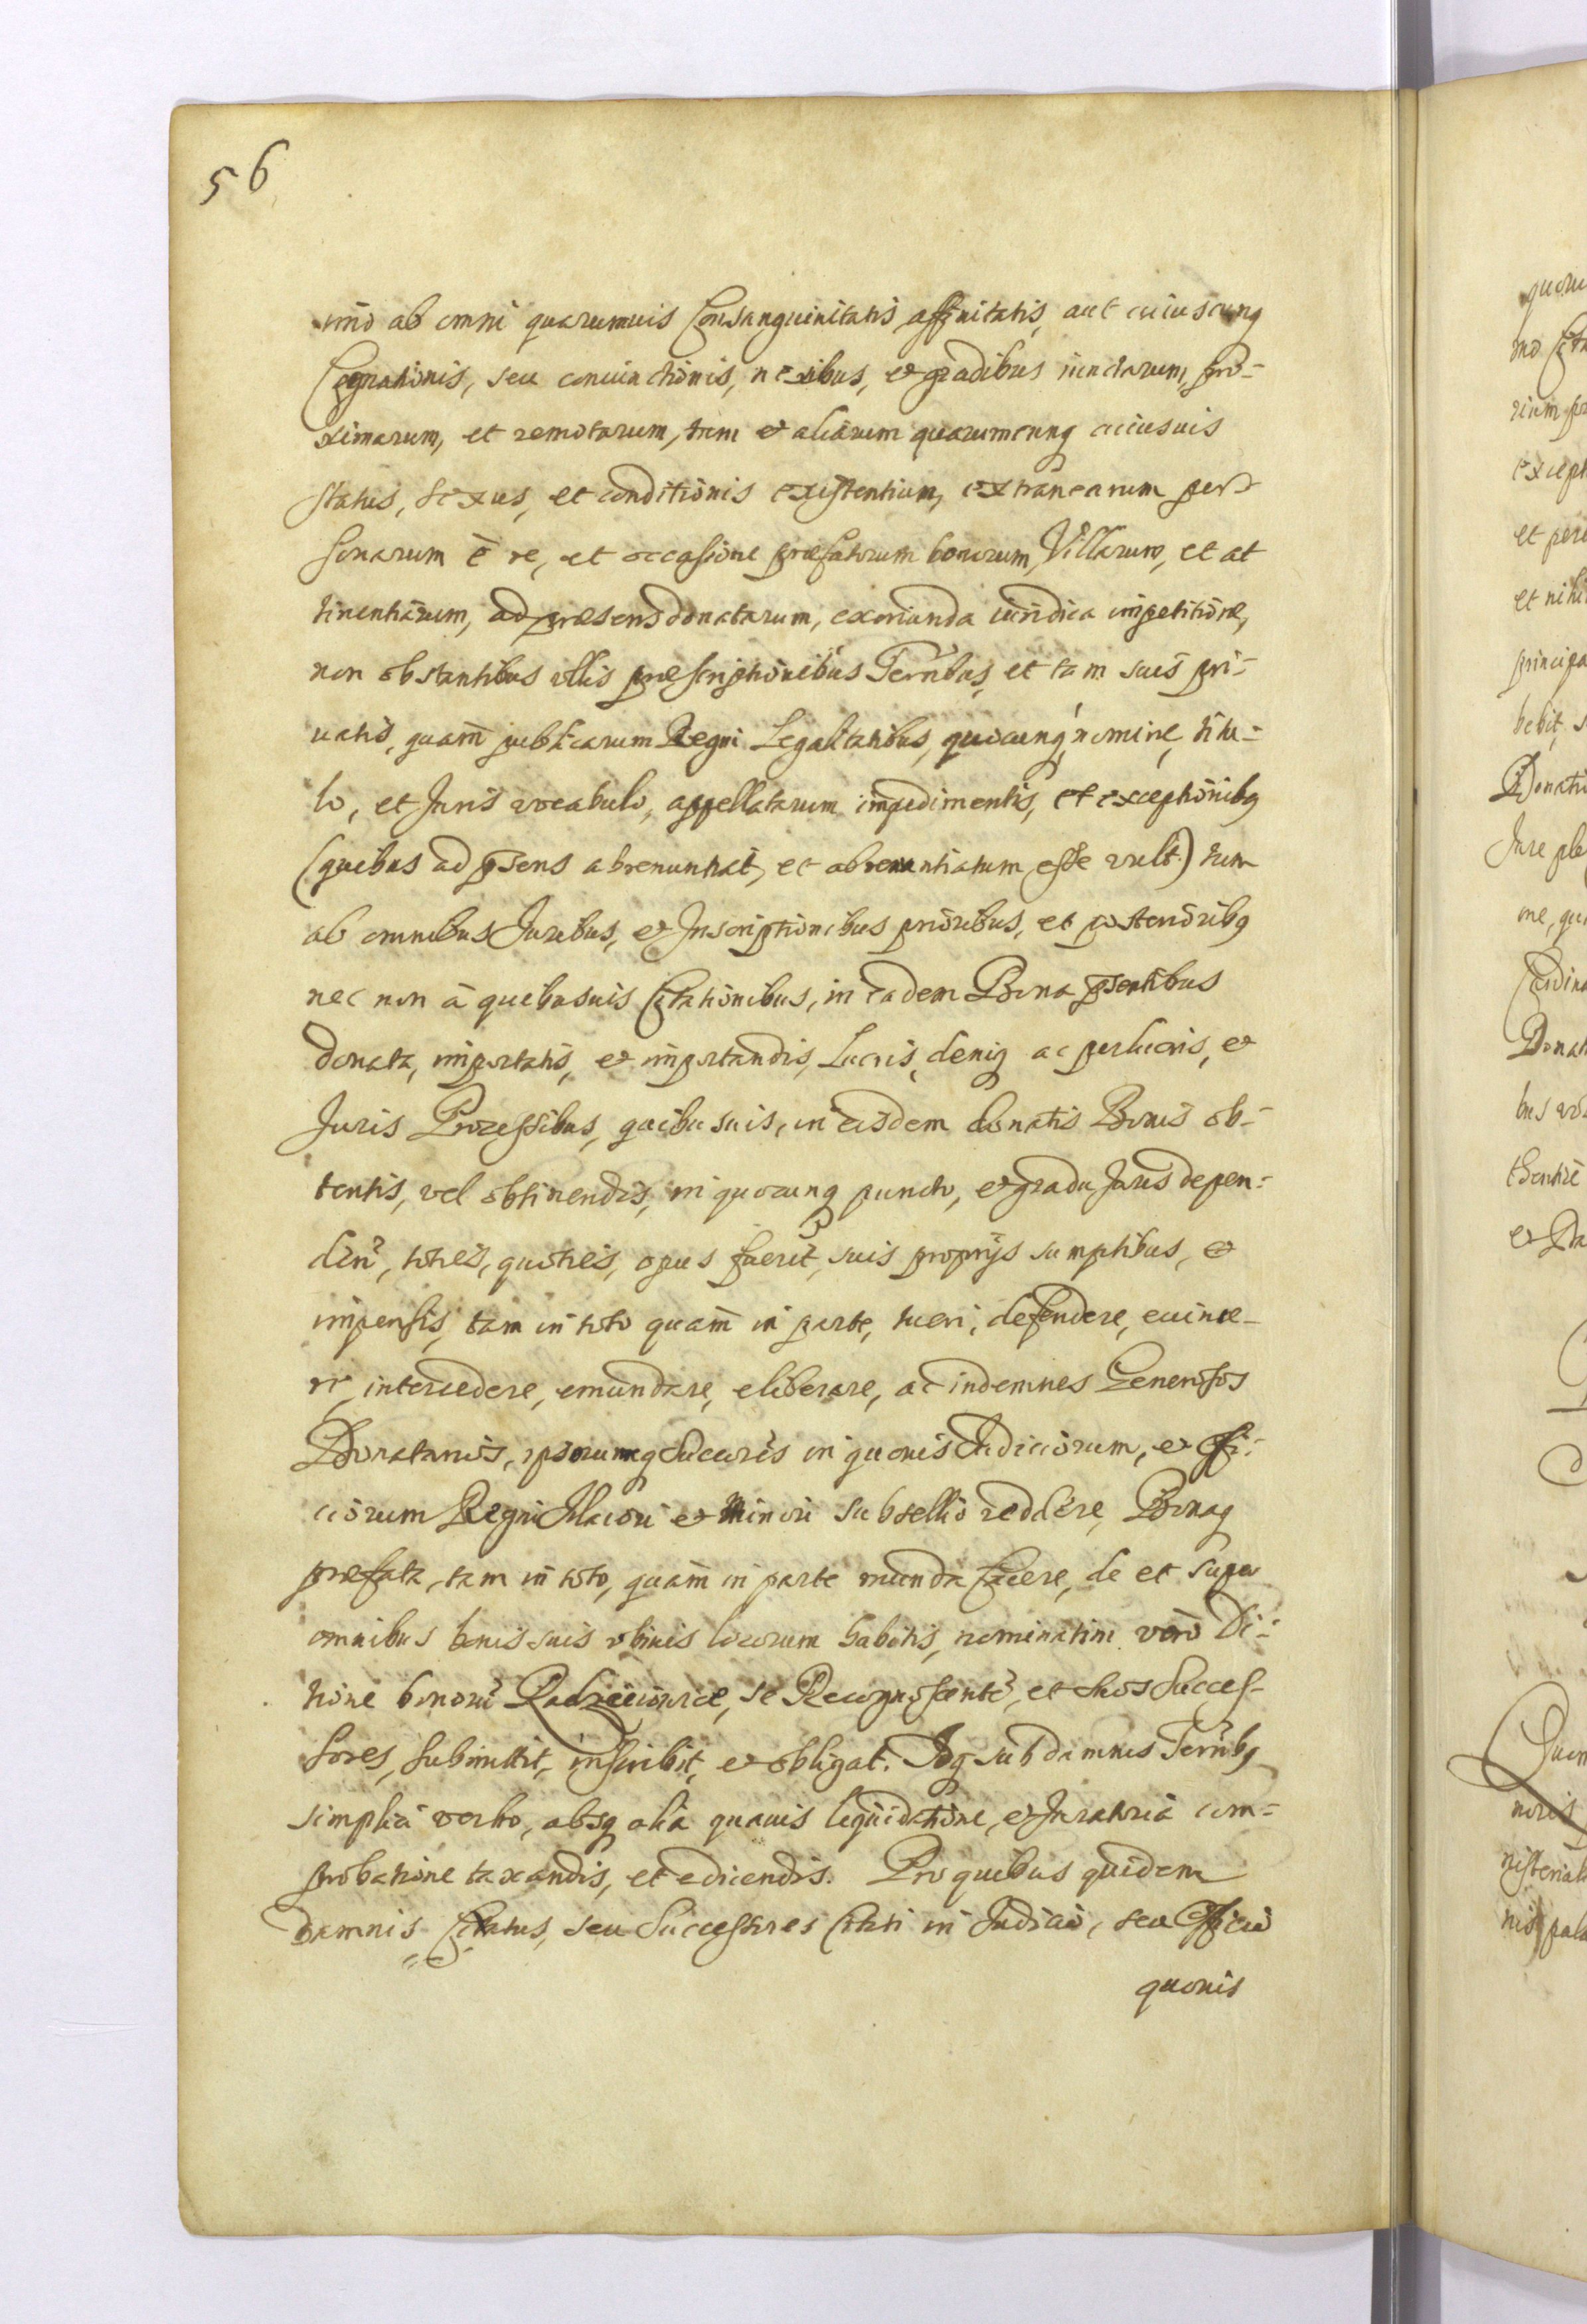 56
imo ab omni quarumuis Consanguinitatis, affinitatis, aut cuiuscunq
Cognationis, seu conuinctionis, nexibus, et gradibus iunctarum, pro-
ximarum, et remotarum, tum et aliarum quarumcunq cuiusuis
status, sexus, et conditionis existentium, extranearum per-
sonarum è re, et occasione præfatorum bonorum, Villarum, et at
tinentiarum, ad præsens donatarum, exoriunda iuridica impetitione,
non obstantibus ullis præscriptionibus Terrībus, et tam suis pri-
uatis, quam publicarum Regni Legalitatibus, quocunq nomine, titu-
lo, et Juris vocabulo, appellatarum impedimentis, et exceptionibq
(quibus ad pñsens abrenuntiat, et abrenuntiatum esse vult) tum
ab omnibus Juribus, et Inscriptionibus prioribus, et posterioribq
nec non à quibusuis Citationibus, in eadem Bona pñsentibus
donata, importatis, et importandis, Lucris, deniq ac perlucris, et
Juris Processibus, quibusuis, in eisdem donatis Bonis ob-
tentis, vel obtinendis, in quocunq puncto, et gradu Juris depen-
den, toties, quoties, opus fuerit, suis proprijs sumptibus, et
impensis, tam in toto quam in parte, tueri, defendere, euince-
re, intercedere, emundare, eliberare, ac indemnes Generosos
Donatarios, ipsorumq Succores in quouis Judiciorum, et Offi-
ciorum Regni Maiori et Minori subsellio reddere, Bonaq
præfata, tam in toto, quam in parte munda facere, de et super
omnibus bonis suis ubiuis locorum habitis, nominatim vero Di-
tione bonorū Radzieiowice, se Recognoscentē, et suos Succes-
sores, submittit, inscribit, et obligat. Idq sub damnis Terrībq
simplici verbo, absq alia quauis liquidatione, et Juratoria com-
probatione taxandis, et edicendis. Pro quibus quidem
damnis Citatus, seu Successores Citati in Judicio, seu Officio
quouis